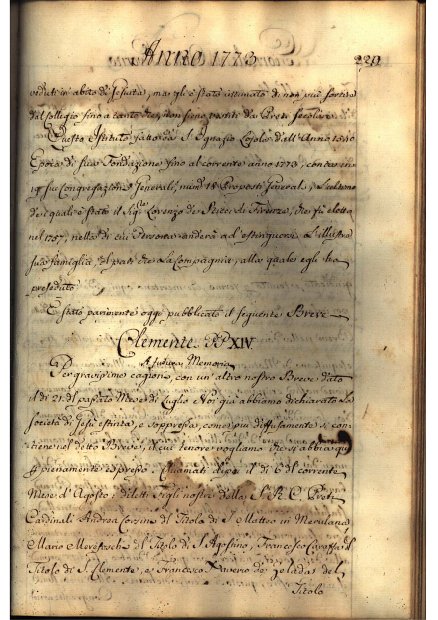 ANNO 1773
239
veduti in abito di Gesuita, ma gli è stato intimato di non più sortire
dal Collegio fino a tanto che non siano vestiti da Preti Secolari.
Questo Istituto fatto da S. Ignazio Lojola dell'Anno 1540
Epoca di sua Fondazione fino al corrente anno 1773, conta in
19 sue Congregazioni Generali, num. 18 Preposti Generali, e l'ultimo
de' quali è stato il Sig.e Lorenzo de Ricci di Firenze, che fù eletto
nel 1757, nella di cui Persona anderà ad estinguersi l'illustre
sua famiglia al pari che la Compagnia, alla quale egli ha
preseduto.
È stato parimente oggi pubblicato il seguente Breve
Clemente PP XIV
A futura Memoria
Per gravissime cagioni, con un'altro nostro Breve dato
il dì 21. del passato Mese di Luglio Noi già abbiamo dichiarata la
Società di Gesù estinta, e soppressa, come più diffusamente si con-
tiene nel detto Breve, il cui tenore vogliamo che si abbia qui
pienamente espresso. Chiamati dipoi il dì 6 del corrente
Mese d'Agosto i diletti Figli nostri della S. R. C. Preti
Cardinali Andrea Corsino del Titolo di S. Matteo in Merulana,
Mario Marefoschi del Titolo di S. Agostino, Francesco Caraffa del
Titolo di S. Clemente, e Francesco Xaverio de Zeladas del
Titolo